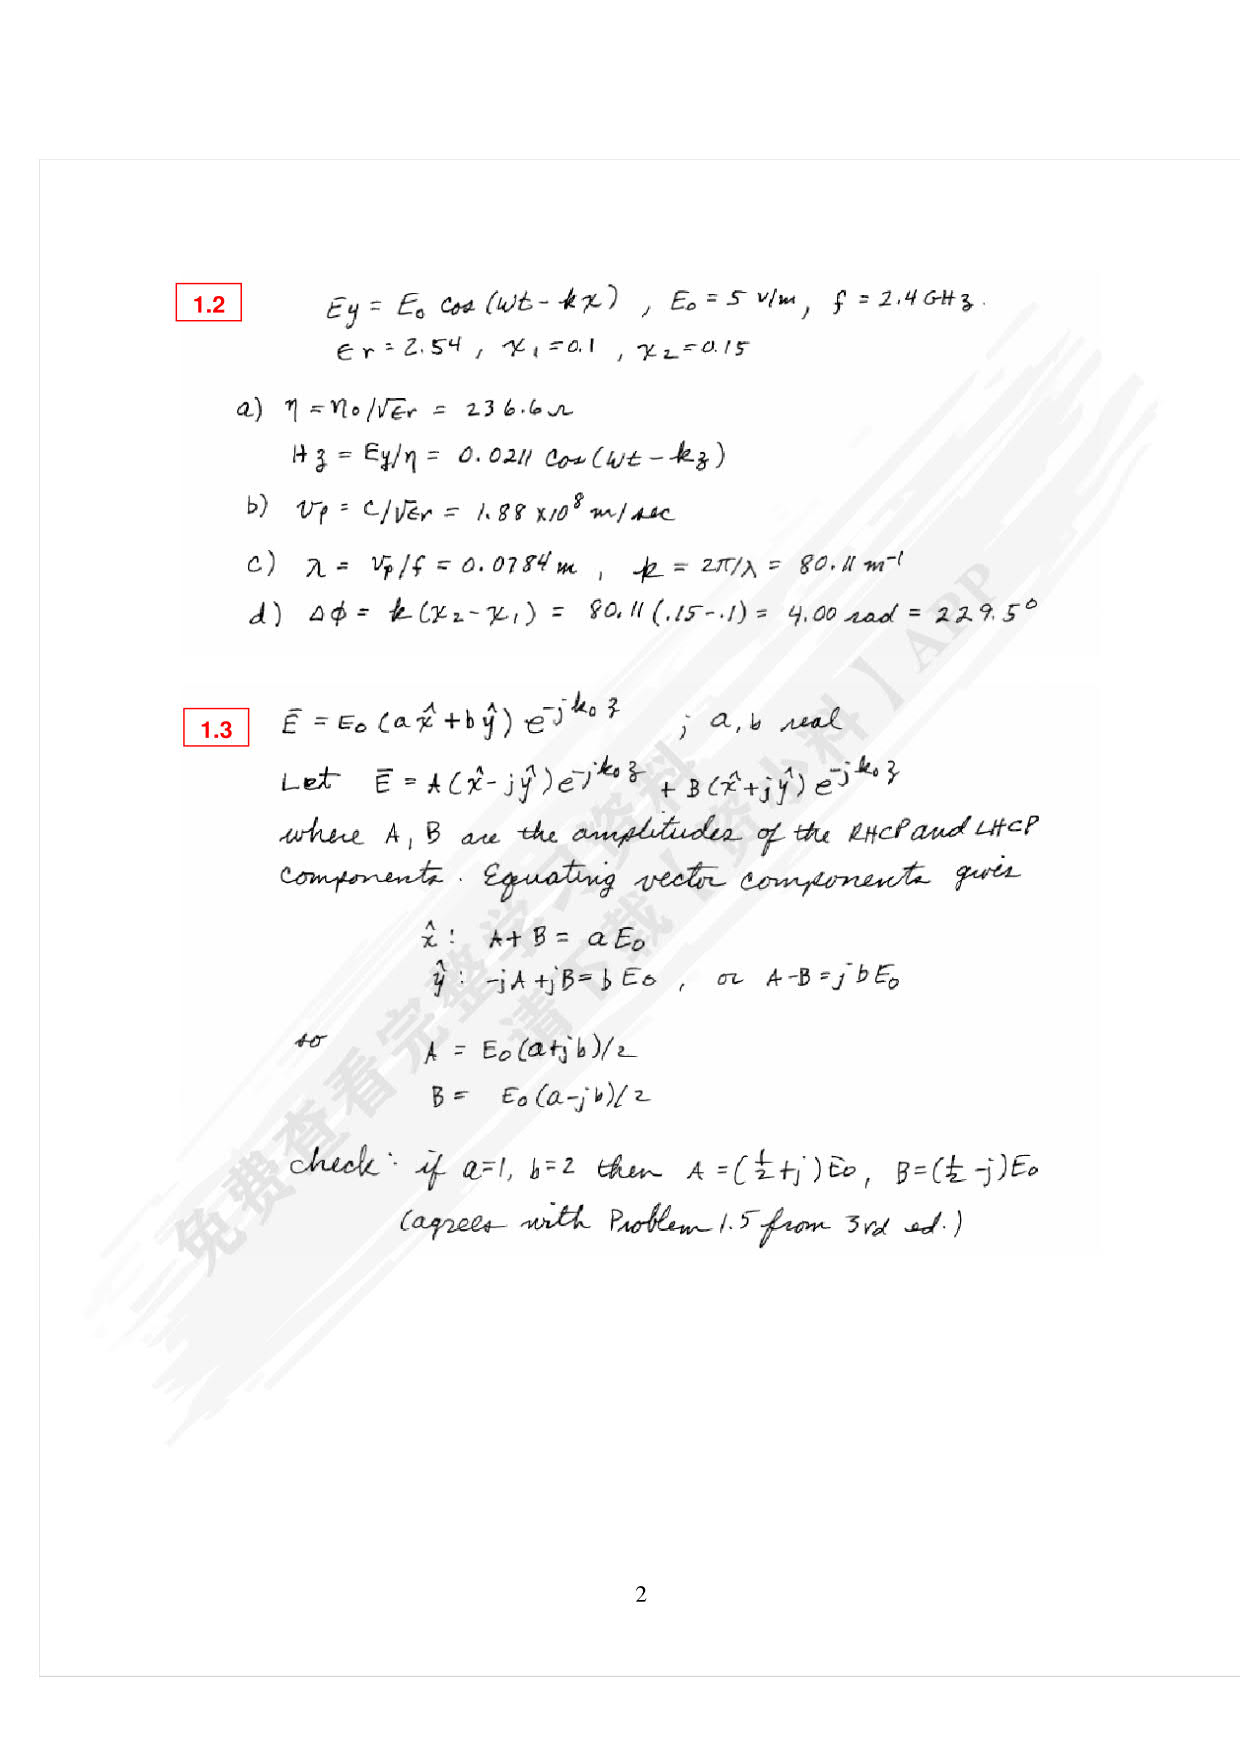 1.2 Ey = E₀ cos(ωt - kx), E₀ = 5 V/m, f = 2.4 GHz.
εr = 2.54, x₁ = 0.1, x₂ = 0.15
a) η = η₀/√εr = 236.6 Ω
Hz = Ey/η = 0.0211 cos(ωt - kz)
b) vp = c/√εr = 1.88 x10⁸ m/sec
c) λ = vp/f = 0.0784 m, k = 2π/λ = 80.11 m⁻¹
d) Δϕ = k(x₂-x₁) = 80.11(.15-.1) = 4.00 rad = 229.5°
1.3 Ē = E₀(a x̂ + b ŷ) e^-jk₀z ; a, b real
Let Ē = A(x̂ - jŷ)e^-jk₀z + B(x̂ + jŷ)e^-jk₀z
where A, B are the amplitudes of the RHCP and LHCP
components. Equating vector components gives
x̂: A + B = a E₀
ŷ: -jA + jB = b E₀, or A - B = j b E₀
so A = E₀(a+jb)/2
B = E₀(a-jb)/2
check: if a=1, b=2 then A = (1/2 + j)E₀, B = (1/2 - j)E₀
(agrees with Problem 1.5 from 3rd ed.)
免费查看完整学习资料
请下载【资小料】APP
2